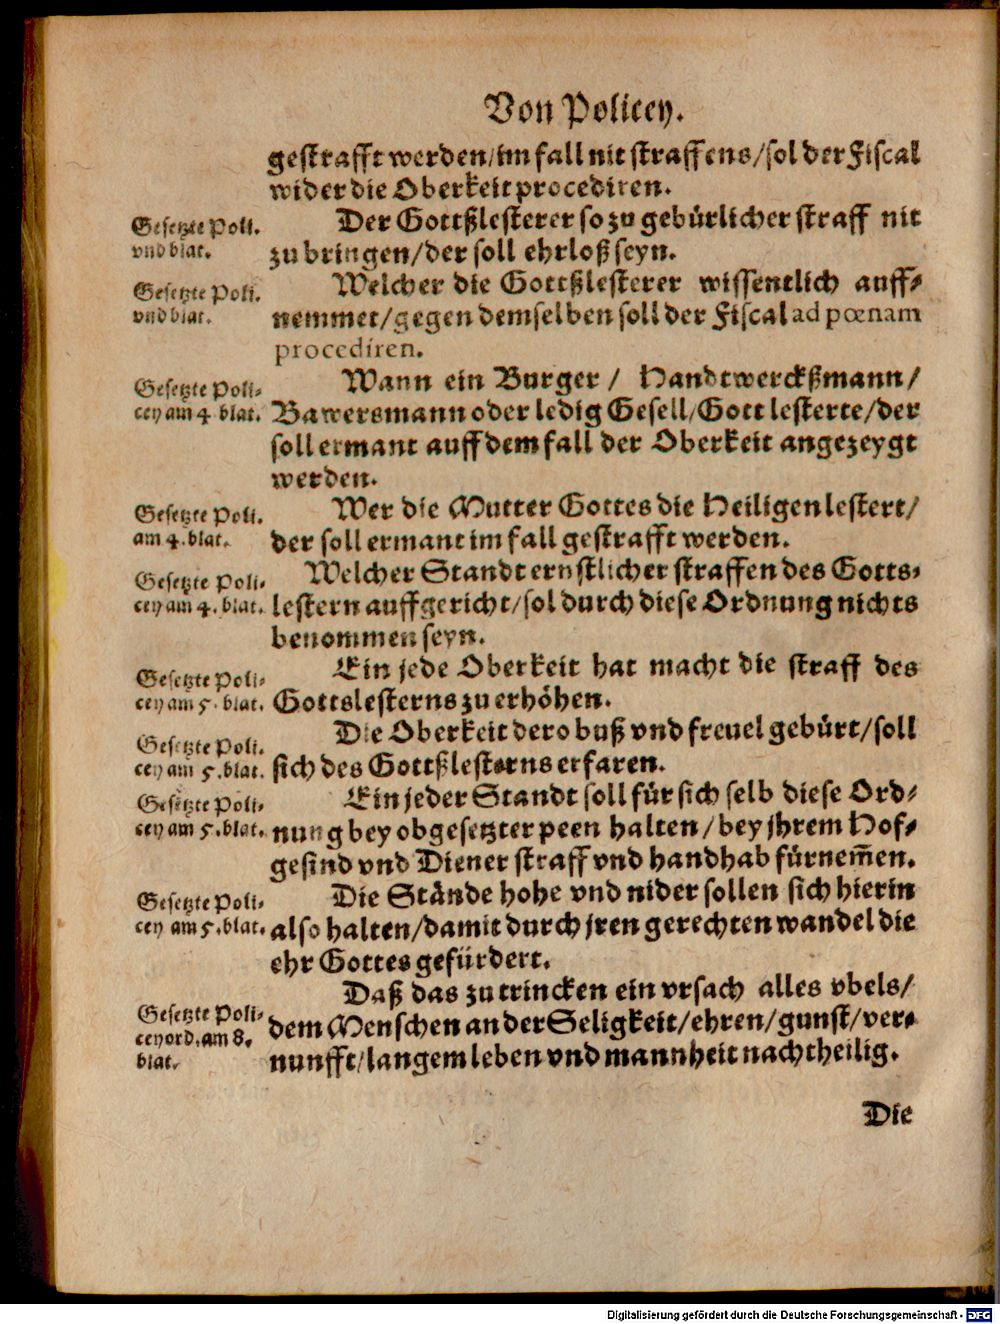 Von Policey.
gestrafft werden/im fall nit straffens/sol der Fiscal
wider die Oberkeit procediren.
Gesetzte Poli.
vnd blat.
Der Gottßlesterer so zu gebürlicher straff nit
zu bringen/der soll ehrloß seyn.
Gesetzte Poli.
vnd blat.
Welcher die Gottßlesterer wissentlich auff-
nemmet/gegen demselben soll der Fiscal ad pœnam
procediren.
Gesetzte Poli-
cey am 4 blat.
Wann ein Burger / Handtwerckßmann/
Bawersmann oder ledig Gesell/Gott lesterte/der
soll ermant auff dem fall der Oberkeit angezeygt
werden.
Gesetzte Poli.
am 4. blat.
Wer die Mutter Gottes die Heiligen lestert/
der soll ermant im fall gestrafft werden.
Gesetzte Poli-
cey am 4. blat.
Welcher Standt ernstlicher straffen des Gotts-
lestern auffgericht/sol durch diese Ordnung nichts
benommen seyn.
Gesetzte Poli-
cey am 5. blat.
Ein jede Oberkeit hat macht die straff des
Gottslesterns zu erhöhen.
Gesetzte Poli.
cey am 5. blat.
Die Oberkeit dero buß vnd freuel gebürt/soll
sich des Gottßlesterns erfaren.
Gesetzte Poli-
cey am 5. blat.
Ein jeder Standt soll für sich selb diese Ord-
nung bey obgesetzter peen halten/bey jhrem Hof-
gesind vnd Diener straff vnd handhab fürnem̃en.
Gesetzte Poli-
cey am 5. blat.
Die Stände hohe vnd nider sollen sich hierin
also halten/damit durch jren gerechten wandel die
ehr Gottes gefürdert.
Gesetzte Poli-
ceyord. am 8.
blat.
Daß das zutrincken ein vrsach alles vbels/
dem Menschen an der Seligkeit/ehren/gunst/ver-
nunfft/langem leben vnd mannheit nachtheilig.
Die
Digitalisierung gefördert durch die Deutsche Forschungsgemeinschaft - DFG